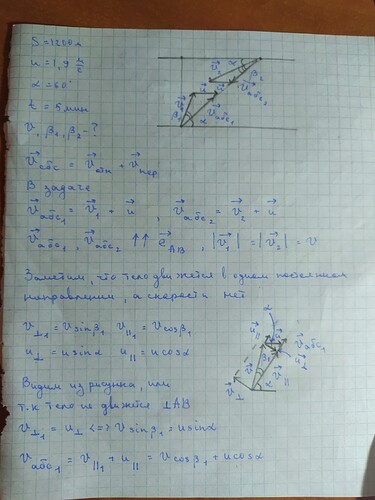 S = 1200 м
u = 1,9 м/с
α = 60°
t = 5 мин
v, β₁, β₂ - ?
v⃗абс = v⃗отн + v⃗пер
В задаче
v⃗абс₁ = v⃗₁ + u⃗ , v⃗абс₂ = v⃗₂ + u⃗
v⃗абс₁, v⃗абс₂ ↑↑ e⃗AB , |v⃗₁| = |v⃗₂| = v
Заметим, что тело движется в одном постоянном
направлении, а скорости нет
v⊥₁ = v sinβ₁ v||₁ = v cosβ₁
u⊥ = u sinα u|| = u cosα
Видим из рисунка, или
т.к тело не движется ⊥AB
v⊥₁ = u⊥ <=> v sinβ₁ = u sinα
vабс₁ = v||₁ + u|| = v cosβ₁ + u cosα